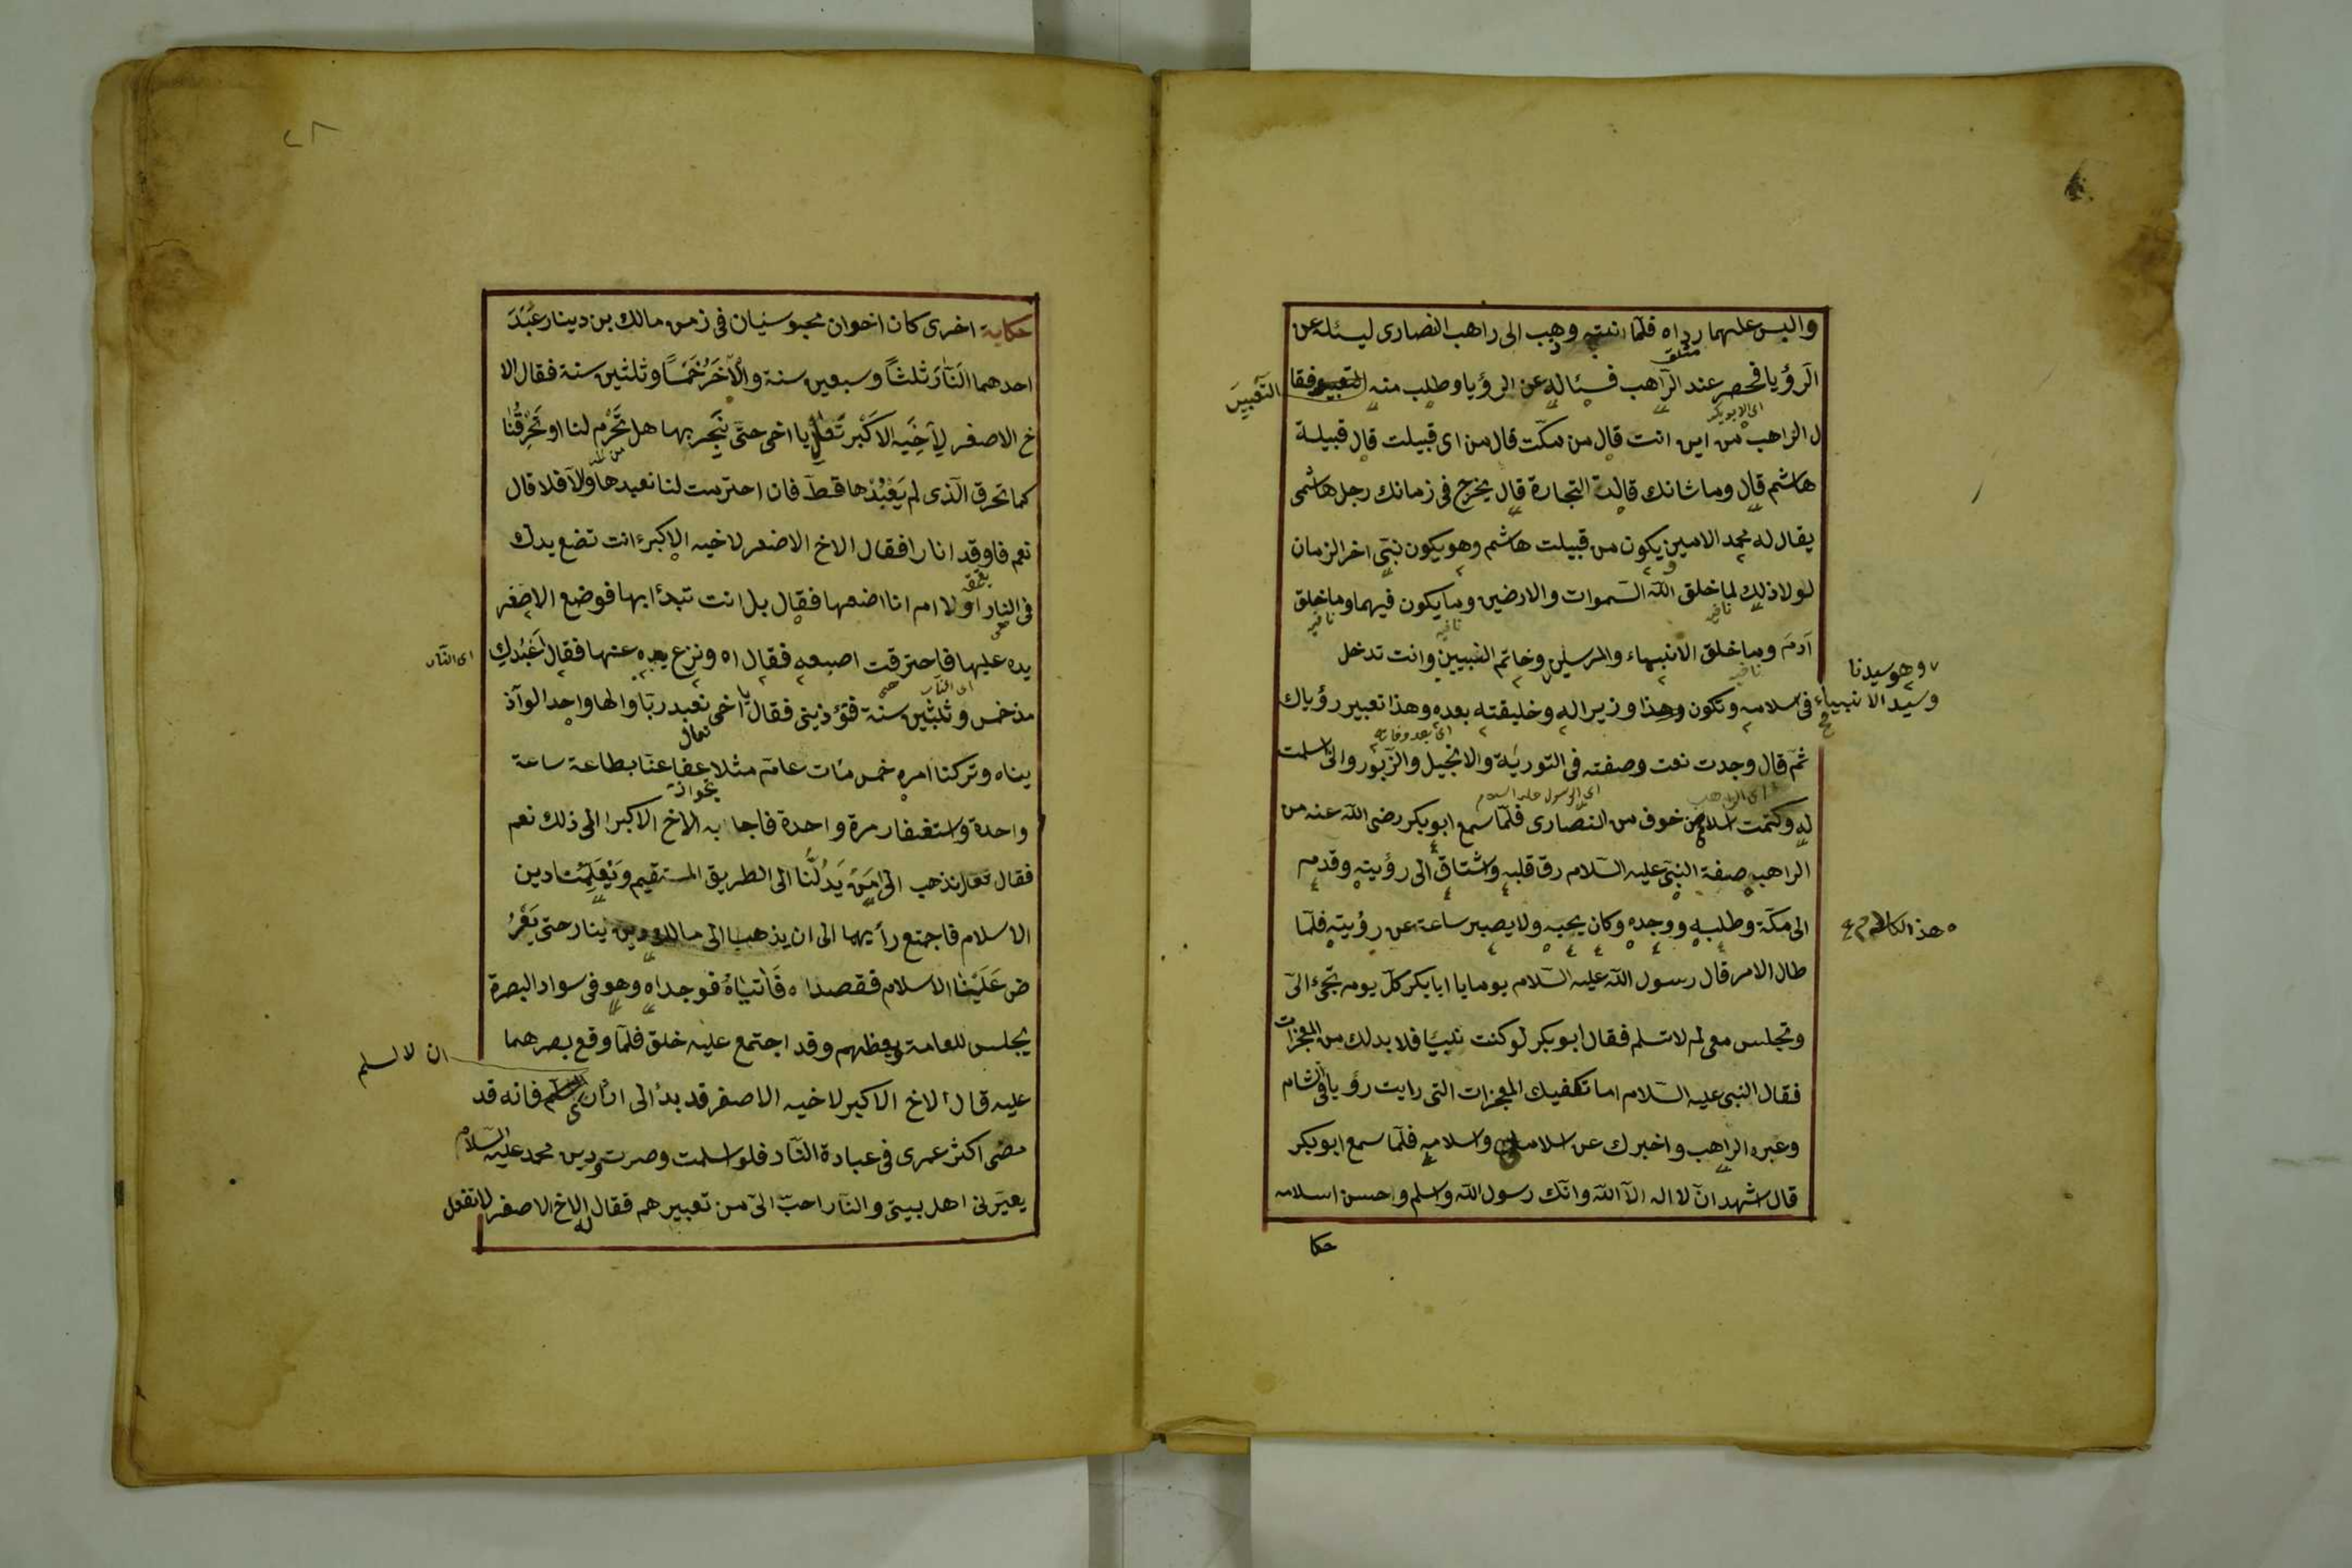 والبس عليهما رداه فلما انتبه وهب الى راهب النصارى ليسئله عن
الرؤيا فحصر عند الراهب فسئاله عن الرؤيا وطلب منه التعبير فقا
التعبير
ل الراهب من اين انت قال من مكت قال من اى قبيلت قال قبيلة
هاشم قال وما شانك قالت التجارة قال يخرج فى زمانك رجل هاشمى
يقال له محمد الامين يكون من قبيلت هاشم وهو يكون نبى اخر الزمان
لولا ذلك لما خلق الله السموات والارضين وما يكون فيهما وما خلق
آدم وما خلق الانبياء والمرسلين وخاتم النبيين وانت تدخل
وهو سيدنا
وسيد الانبياء
فى سلامه وتكون وهذا وزيرا له وخليقته بعده وهذا تعبير رؤياك
اى بعد وفاته
ثم قال وجدت نعت وصفته فى التورية والانجيل والزبور وانى اسلمت
اى الراهب
اى الرسول عليه السلام
له وكتمت اسلام من خوف من النصارى فلما سمع ابو بكر رضى الله عنه من
الراهب صفة النبى عليه السلام رق قلبه واشتاق الى رؤيته وقدم
الى مكة وطلبه ووجده وكان يحبه ولا يصبر ساعة عن رؤيته فلما
هذا الكلام
طال الامر قال رسول الله عليه السلام يوما يا ابا بكر كل يوم تجىء الى
وتجلس معى لم لا تسلم فقال ابو بكر لو كنت نبيا فلا بد لك من المعجزات
فقال النبى عليه السلام اما تكفيك المعجزات التى رايت رؤيا فى شام
وعبره الراهب واخبرك عن اسلام واسلامه فلما سمع ابو بكر
قال اشهد ان لا اله الا الله وانك رسول الله واسلم وحسن اسلامه
حكا
٢٨
حكاية اخرى كان اخوان مجوسيان فى زمن مالك بن دينار عبد
احدهما النار ثلثا وسبعين سنة والآخر خمسا وثلثين سنة فقال الا
خ الاصغر لاخيه الاكبر تعال يا اخى حتى نجربها هل تحرم لنا او تحرقنا
كما تحرق الذى لم يعبدها قط فان احترمت لنا نعبدها والا فلا قال
نعم فاوقد انارا فقال الاخ الاضعر لاخيه الاكبر ءانت تضع يدك
فى النار اولا ام انا اضعها فقال بل انت تبدأ ابها فوضع الاصغر
يده عليها فاحترقت اصبعه فقال اه ونزع يده عنها فقال اعبدك
اى النار
مذ خمس وثلثين سنة فتؤذينى فقال يا اخى نعبد ربا والها واحد الو آذ
اى النار
يناه وتركنا امره خمس مئات عام مثلا عفا عنا بطاعة ساعة
واحدة واستغفار مرة واحدة فاجابه الاخ الاكبر الى ذلك نعم
فقال تعال نذهب الى من يدلنا الى الطريق المستقيم ويعلمنا دين
الاسلام فاجمتع رأيهما الى ان يذهب الى مالك بن دينار حتى يعر
ض علينا الاسلام فقصداه فاتياه فوجداه وهو فى سواد البصرة
يجلس للعامة ويعظهم وقد اجتمع عليه خلق فلما وقع بصرهما
ان لا اسلم
عليه قال الاخ الاكبر لاخيه الاصغر قد بدأ الى فانه قد
مضى اكثر عمرى فى عبادة النار فلو اسلمت وصرت دين محمد عليه السلام
يعيرنى اهل بيتى والنار احب الى من تعبيرهم فقال له الاخ الاصغر لا تفعل